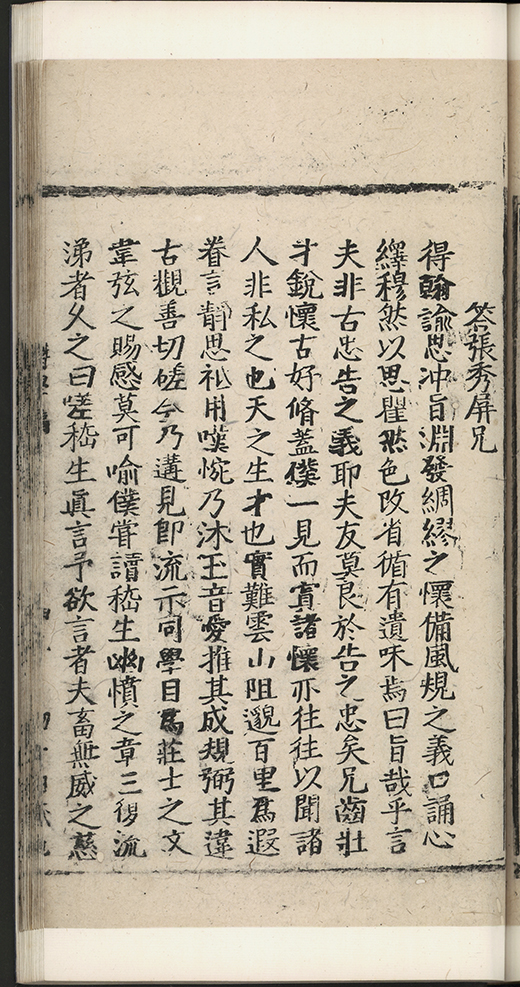 答張秀屏兄
得翰諭思冲旨淵發綢繆之懷備風規之義口誦心
繹穆然以思瞿然色改省循有遺味焉曰旨哉乎言
夫非古忠告之義耶夫友莫良於告之忠矣兄齒壯
才銳懷古好脩蓋僕一見而寘諸懷亦往往以聞諸
人非私之也天之生才也實難雲山阻邈百里爲遐
眷言靜思祗用嘆惋乃沐玉音愛推其成規弼其違
古觀善切磋今乃遘見即流示同學目爲莊士之文
韋弦之賜感莫可喻僕甞讀嵇生幽憤之章三復流
涕者久之曰嗟嵇生眞言予欲言者夫畜無威之慈